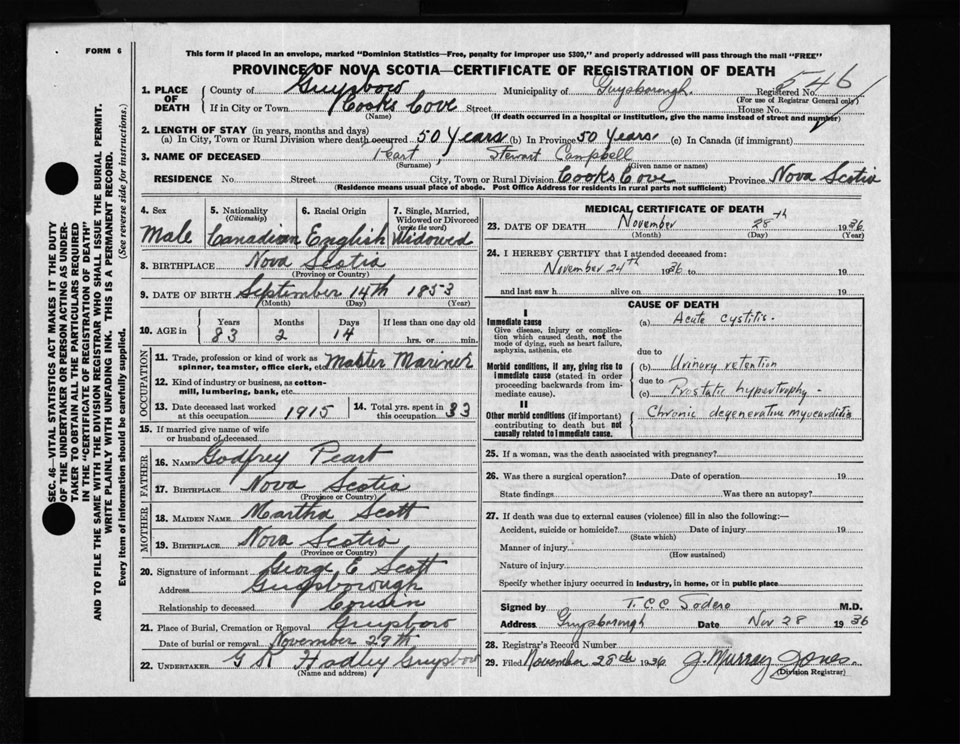 FORM 6
This form if placed in an envelope, marked "Dominion Statistics—Free, penalty for improper use $300," and properly addressed will pass through the mail "FREE"
PROVINCE OF NOVA SCOTIA—CERTIFICATE OF REGISTRATION OF DEATH
1. PLACE OF DEATH
County of Guysboro Municipality of Guysborough. Registered No. 546
(For use of Registrar General only)
If in City or Town Cooks Cove Street House No.
(Name) (If death occurred in a hospital or institution, give the name instead of street and number)
2. LENGTH OF STAY (in years, months and days)
(a) In City, Town or Rural Division where death occurred 50 Years (b) In Province 50 Years (c) In Canada (if immigrant)
3. NAME OF DECEASED Peart, Stewart Campbell
(Surname) (Given name or names)
RESIDENCE No. Street City, Town or Rural Division Cooks Cove Province Nova Scotia
(Residence means usual place of abode. Post Office Address for residents in rural parts not sufficient)
4. Sex
Male
5. Nationality
(Citizenship)
Canadian
6. Racial Origin
English
7. Single, Married, Widowed or Divorced
(write the word)
Widowed
8. BIRTHPLACE Nova Scotia
(Province or Country)
9. DATE OF BIRTH September 14th 1853
(Month) (Day) (Year)
10. AGE in
Years Months Days If less than one day old
83 2 14 hrs. or min.
OCCUPATION
11. Trade, profession or kind of work as
spinner, teamster, office clerk, etc. Master Mariner
12. Kind of industry or business, as cotton-
mill, lumbering, bank, etc.
13. Date deceased last worked
at this occupation 1915
14. Total yrs. spent in
this occupation 33
15. If married give name of wife
or husband of deceased
FATHER
16. NAME Godfrey Peart
17. BIRTHPLACE Nova Scotia
(Province or Country)
MOTHER
18. MAIDEN NAME Martha Scott
19. BIRTHPLACE Nova Scotia
(Province or Country)
20. Signature of informant George E Scott
Address Guysborough
Relationship to deceased Cousin
21. Place of Burial, Cremation or Removal Guysboro
Date of burial or removal November 29th
22. UNDERTAKER Hadley Guysboro
(Name and address)
MEDICAL CERTIFICATE OF DEATH
23. DATE OF DEATH November 28th 1936
(Month) (Day) (Year)
24. I HEREBY CERTIFY that I attended deceased from:
November 24th 1936 to 19
and last saw h alive on 19
CAUSE OF DEATH
I
Immediate cause
Give disease, injury or complica-
tion which caused death, not the
mode of dying, such as heart failure,
asphyxia, asthenia, etc
(a) Acute Cystitis.
due to
Morbid conditions, if any, giving rise to
immediate cause (stated in order
proceeding backwards from im-
mediate cause).
(b) Urinary retention
due to
(c) Prostatic hypertrophy.
II
Other morbid conditions (if important)
contributing to death but not
causally related to immediate cause.
Chronic degenerative myocarditis
25. If a woman, was the death associated with pregnancy?
26. Was there a surgical operation? Date of operation 19
State findings Was there an autopsy?
27. If death was due to external causes (violence) fill in also the following:—
Accident, suicide or homicide? Date of injury 19
(State which)
Manner of injury
(How sustained)
Nature of injury
Specify whether injury occurred in industry, in home, or in public place
Signed by T. C. C. Sodero M.D.
Address Guysborough Date Nov 28 1936
28. Registrar's Record Number
29. Filed November 28 1936 J. Murray Jones
(Division Registrar)
SEC. 46—VITAL STATISTICS ACT MAKES IT THE DUTY
OF THE UNDERTAKER OR PERSON ACTING AS UNDER-
TAKER TO OBTAIN ALL THE PARTICULARS REQUIRED
IN THE "CERTIFICATE OF REGISTRATION OF DEATH"
AND TO FILE THE SAME WITH THE DIVISION REGISTRAR WHO SHALL ISSUE THE BURIAL PERMIT.
WRITE PLAINLY WITH UNFADING INK. THIS IS A PERMANENT RECORD.
Every item of information should be carefully supplied. (See reverse side for instructions.)